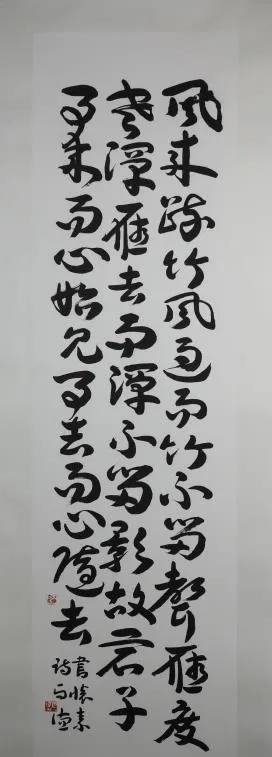 風来疏竹風過而竹不留聲雁度
寒潭雁去而潭不留影故君子
事来而心始見事去而心隨去
書懷素
詩